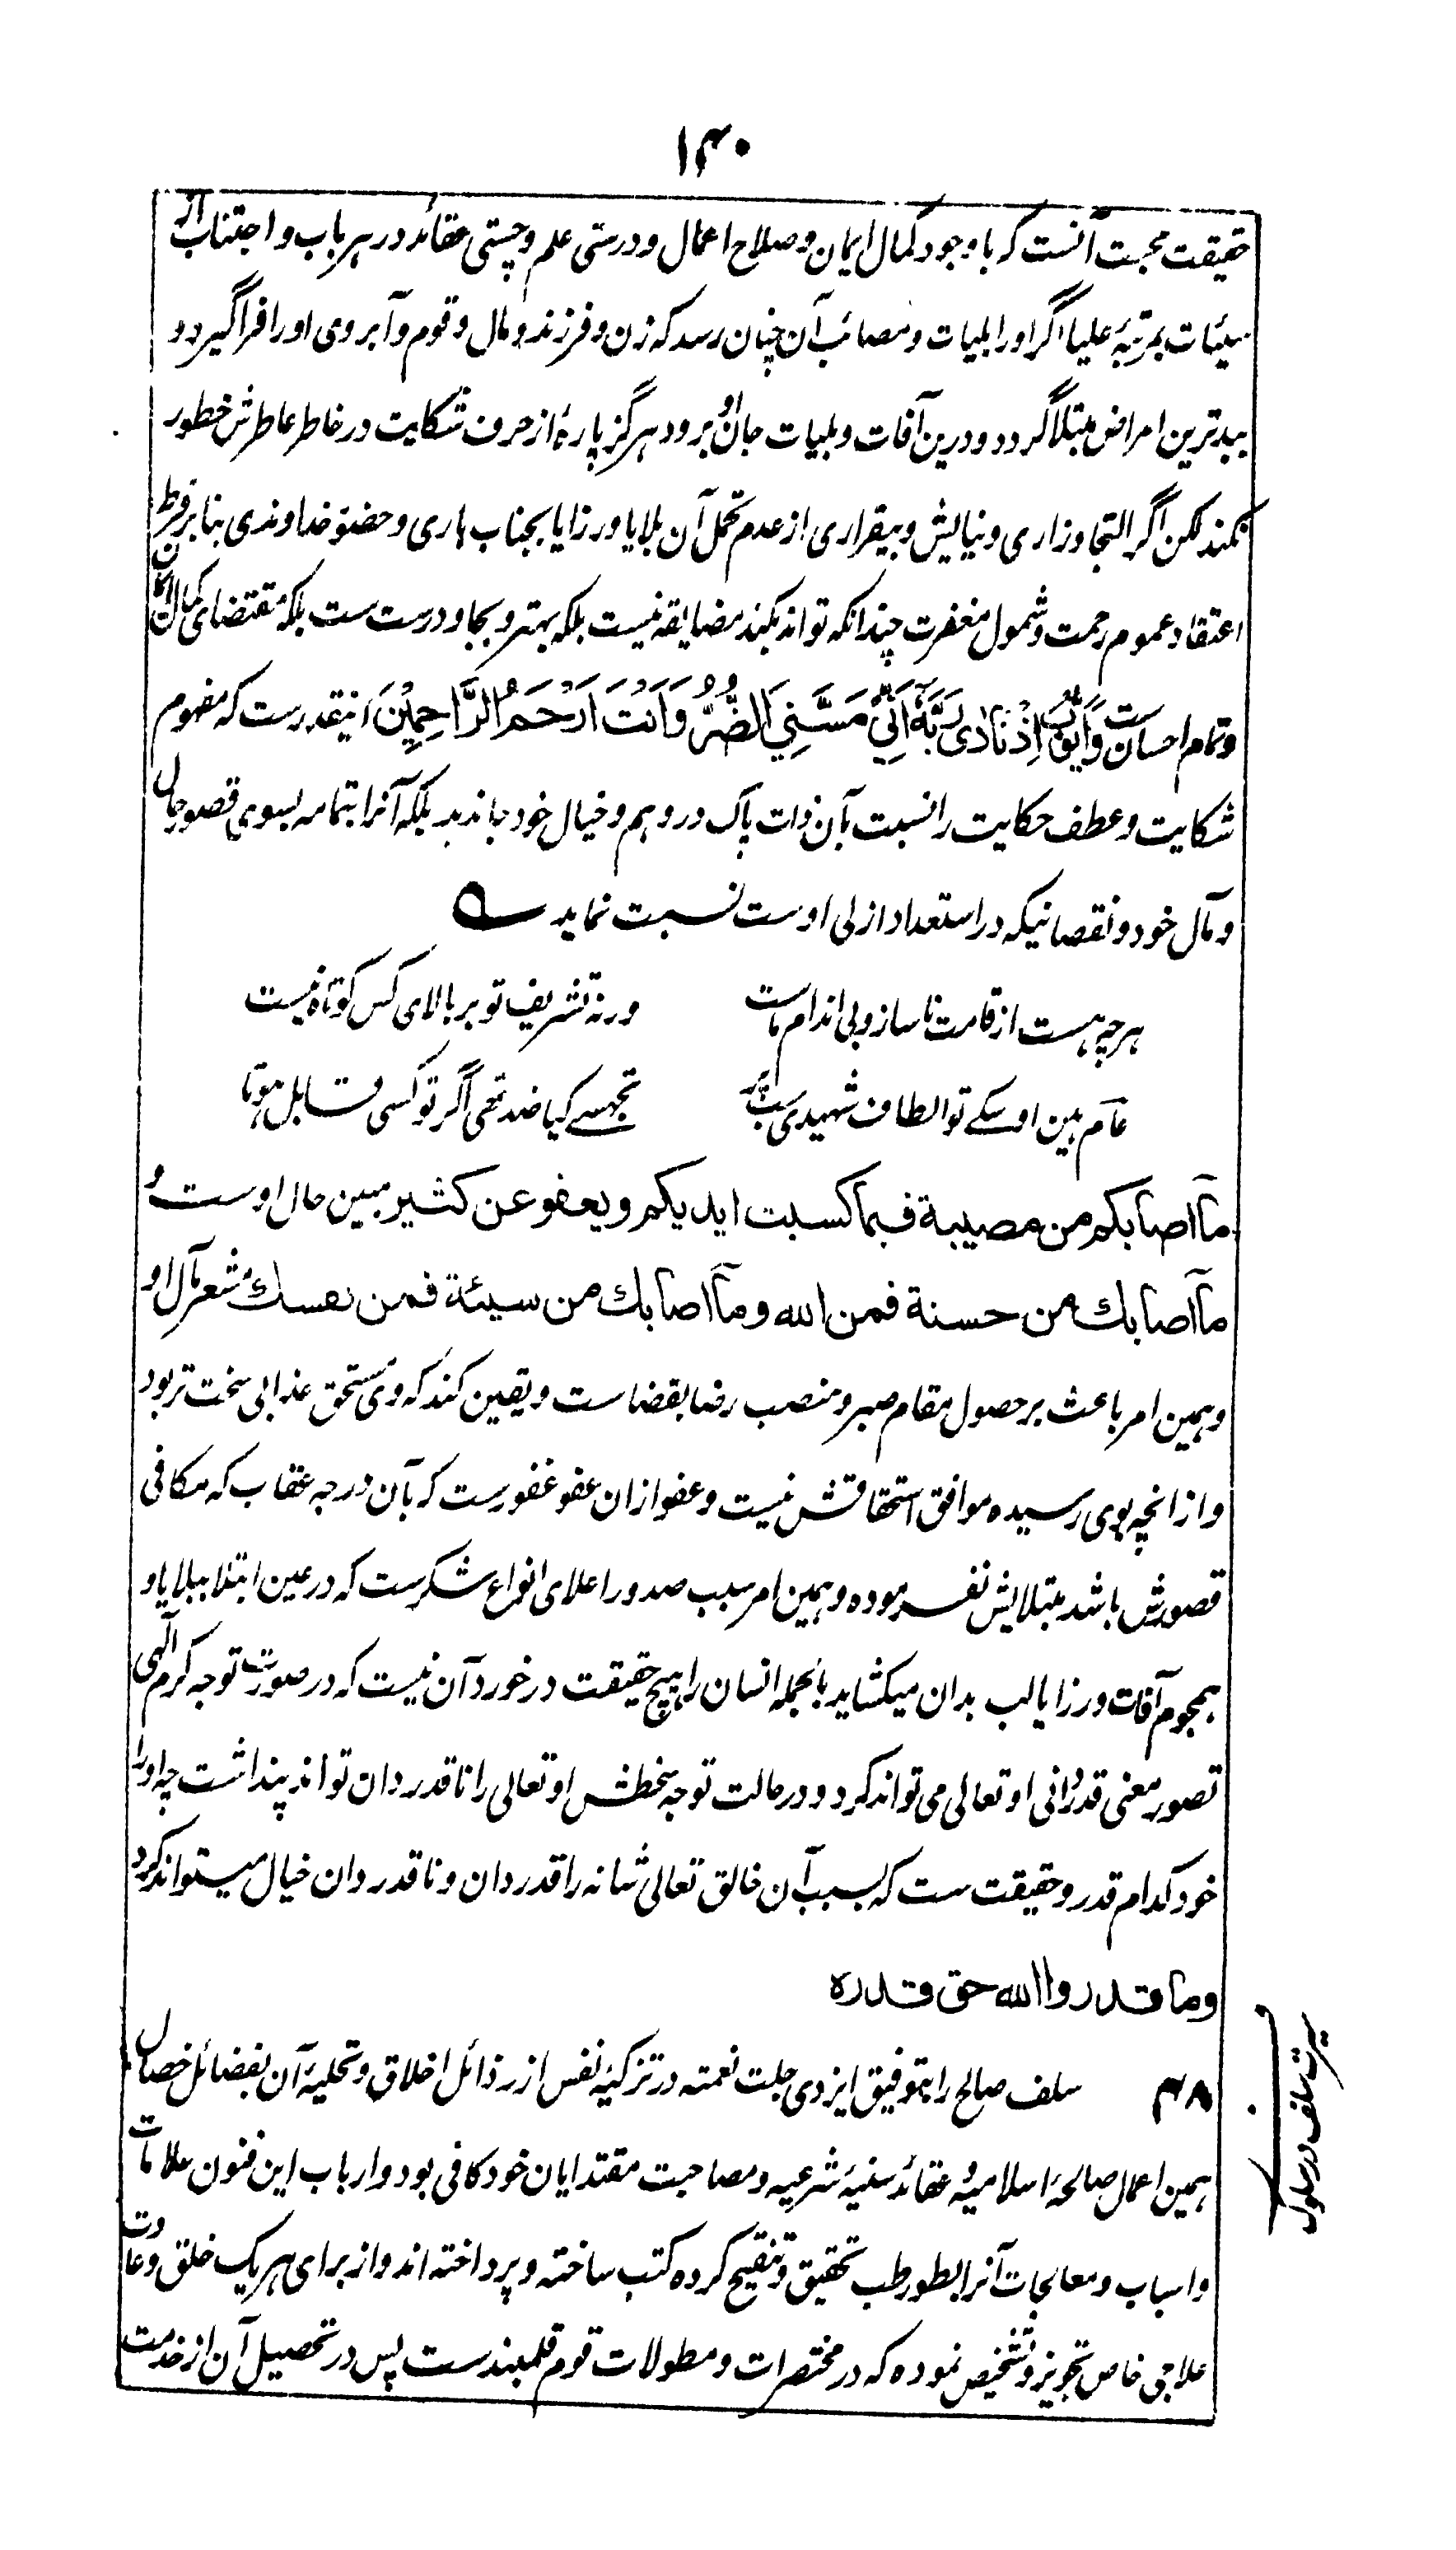 ۱۴۰
حقیقت محبت آنست که باوجود کمال ایمان و صلاح اعمال و درستی علم و چستی عقائد در هر باب و اجتناب از
سیئات بمرتبۂ علیا اگر او را بلیات و مصائب آن چنان رسد که زن و فرزند و مال و قوم و آبروی او را فراگیرد و
ببدترین امراض مبتلا گردد و درین آفات و بلیات جان او برود هرگز پارۂ از حرف شکایت در خاطر عاطرش خطور
نکند لکن اگر التجا و زاری و نیایش و بیقراری از عدم تحمل آن بلایا و رزایا بجناب باری و حضور خداوندی بنا بر فرط
اعتقاد عموم رحمت و شمول مغفرت چندانکه تواند بکند مضایقه نیست بلکه بهتر و بجا و درست ست بلکه مقتضای کمال ایمان
و تمام احسان ست وَاَيُّوْبَ اِذْ نَادٰى رَبَّهٗٓ اَنِّيْ مَسَّنِيَ الضُّرُّ وَاَنْتَ اَرْحَمُ الرَّاحِمِيْنَ اینقدرست که مفهوم
شکایت و عطف حکایت را نسبت بآن ذات پاک در وهم و خیال خود جا ندهد بلکه آنرا بتمامه بسوی قصور حال
و مآل خود و نقصانیکه در استعداد ازلی اوست نسبت نماید ے
هرچه هست از قامت ناساز و بی اندام ماست ورنه تشریف تو بر بالای کس کوتاه نیست
عام ہین اوسکے تو الطاف شہیدی سب پر تجھسے کیا ضد تھی اگر تو کسی قابل ہوتا
مآ اصابکم من مصیبة فبما کسبت ایدیکم ویعفو عن کثیر مبین حال اوست و
مآ اصابك من حسنة فمن الله ومآ اصابك من سیئة فمن نفسك مشعر مآل او
و همین امر باعث بر حصول مقام صبر و منصب رضا بقضاست و یقین کند که وی مستحق عذابی سخت تر بود
و از انچه بوی رسیده موافق استحقاقش نیست و عفو ازان عفو غفورست که بآن درجه عقاب که مکافی
قصورش باشد مبتلایش نفرموده و همین امر سبب صدور اعلای انواع شکرست که در عین ابتلا ببلایا و
هجوم آفات و رزایا لب بدان میکشاید بالجمله انسان را هیچ حقیقت درخورد آن نیست که در صورت توجه کرم آلهی
تصور معنی قدردانی او تعالی می تواند کرد و در حالت توجه سخطش او تعالی را ناقدردان تواند پنداشت چه او را
خود کدام قدر و حقیقت ست که بسبب آن خالق تعالی شانه را قدردان و ناقدردان خیال میتواند کرد
وما قدروا الله حق قدره
۴۸ سلف صالح را بتوفیق ایزدی جلت نعمته در تزکیۂ نفس از رذائل اخلاق و تحلیۂ آن بفضائل خصال
همین اعمال صالحۂ اسلامیه و عقائد سنیۂ شرعیه و مصاحبت مقتدایان خود کافی بود و ارباب این فنون علامات
و اسباب و معالجات آنرا بطور طب تحقیق و تنقیح کرده کتب ساخته و پرداخته اند و از برای هر یک خلق و عادت
علاجی خاص تجویز و تشخیص نموده که در مختصرات و مطولات قوم قلمبندست پس در تحصیل آن از خدمت
سیرت سلف در سلوک